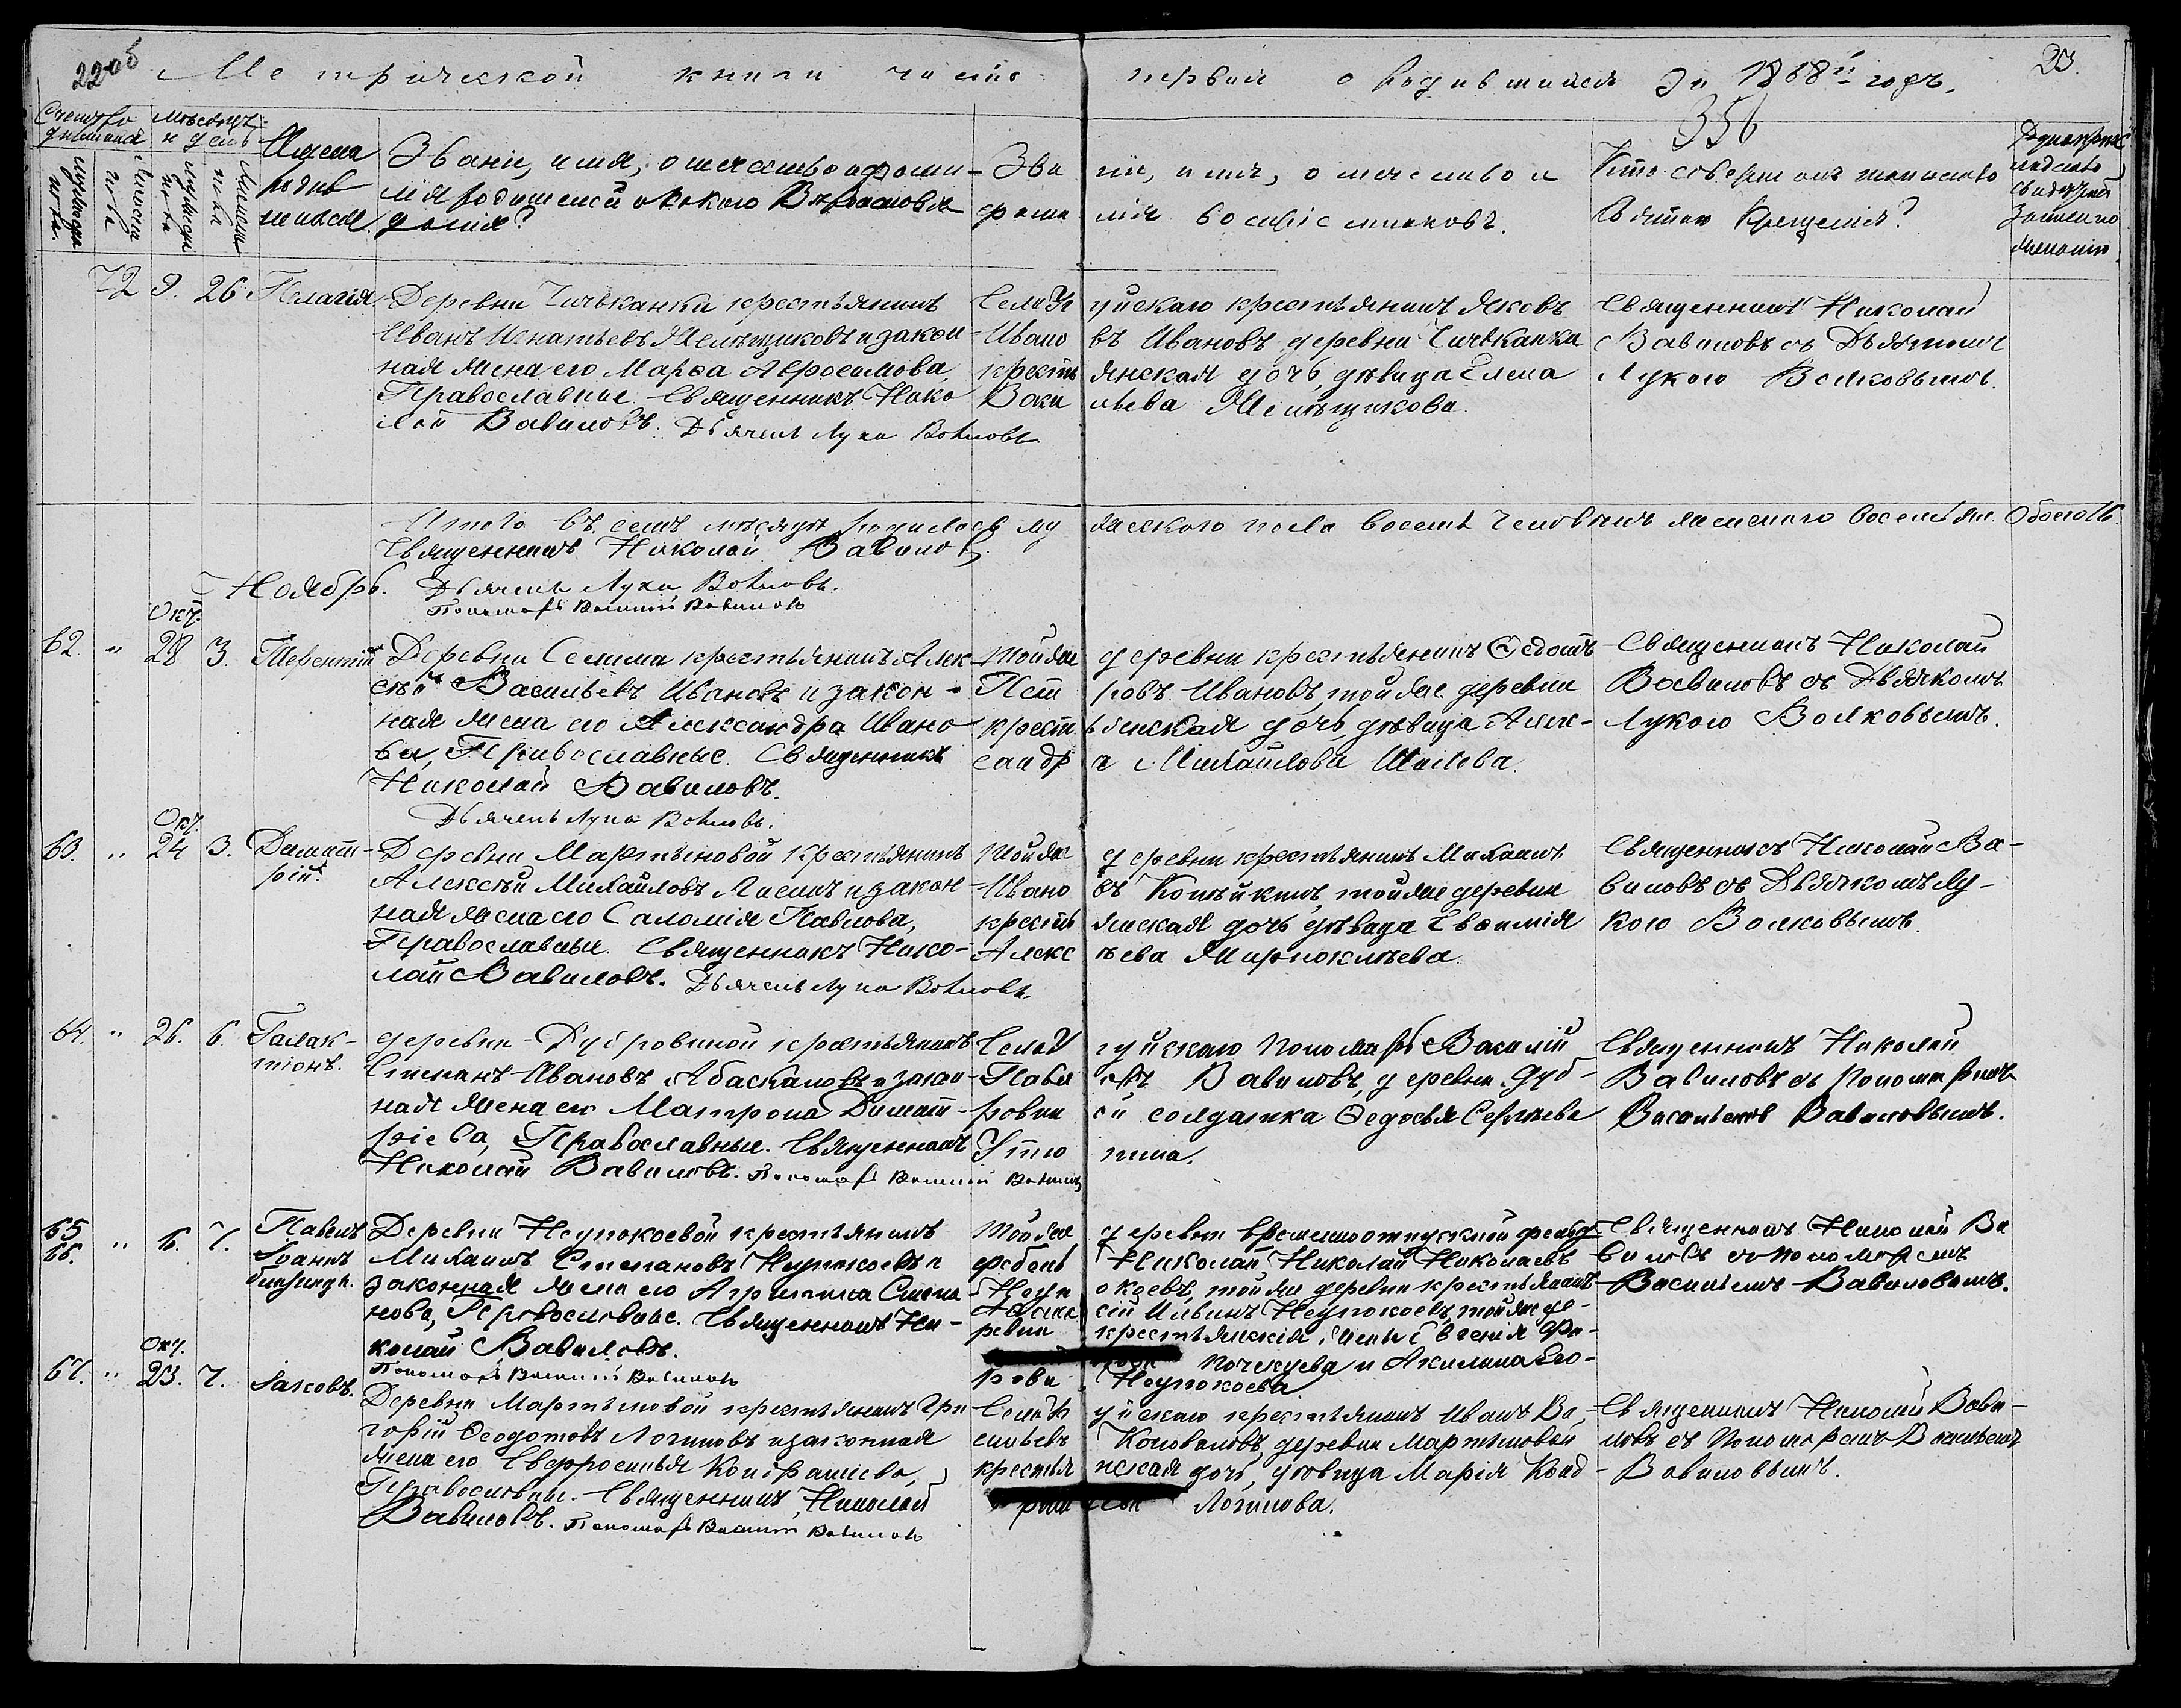 22об
Метрической книги часть первая о родившихся за 1868й годъ.
23.
356
Счетъ родившихся
мужеска пола.
женска пола
Мѣсяцъ и день
Имена родившихся.
Званіе, имя, отчество и фамилія родителей и какого вѣроисповѣданія?
Званіе, имя, отчество и фамилія воспріемниковъ.
Кто совершалъ таинство святаго Крещенія?
72 9. 26 Пелагія.
Деревни Чичканки крестьянинъ
Иванъ Игнатьевъ и закон-
ная жена его Марѳа Авросимова,
Православные. Священникъ Нико
лай Вавиловъ. Дьячекъ Лука Волковъ
крестьянинъ Яковъ
Ивановъ Ивановъ деревни Чичканки
крестьянская дочь, дѣвица Елена
Священникъ Николай
Вавиловъ съ Дьячкомъ
Лукою Волковымъ.
Итого въ семъ мѣсяцѣ родилось мужескаго пола восемь человѣкъ женскаго восемь же. Обоего 16.
Священникъ Николай Вавиловъ
Дьячекъ Лука Волковъ.
Пономарь Василий Вавиловъ
Ноябрь.
Окт.
62. " 28 3. Терентій
Деревни крестьянинъ Алек
сѣй Васильевъ Ивановъ и закон-
ная жена его Александра Ивано
ва, Православные. Священникъ
Николай Вавиловъ.
Дьячекъ Лука Волковъ.
Той же деревни крестьянинъ Ѳедотъ
Петровъ Ивановъ, той же деревни
крестьянская дочь, дѣвица Алек-
сандра Михайлова Шилова.
Священникъ Николай
Вавиловъ съ Дьячкомъ
Лукою Волковымъ.
Окт.
63. " 24 3. Димит-
рій.
Деревни Мартыновой крестьянинъ
Алексѣй Михайловъ и закон
ная жена его Саломія Павлова,
Православные. Священникъ Нико-
лай Вавиловъ. Дьячекъ Лука Волковъ.
Той же деревни крестьянинъ Михаилъ
Ивановъ той же деревни
крестьянская дочь дѣвица Евѳимія
Алексѣева
Священникъ Николай Ва-
виловъ съ Дьячкомъ Лу-
кою Волковымъ.
64. " 26. 6 Галак-
тіонъ.
деревни Дубровиной крестьянинъ
Степанъ Ивановъ Абаскаловъ и закон-
ная жена его Матрона Димит-
ріева, Православные. Священникъ
Николай Вавиловъ. Пономарь Василий Вавиловъ
Пономарь Василій
Павловъ Вавиловъ, деревни Дуб-
ровиной солдатка Ѳедосья Сергѣева
Священникъ Николай
Вавиловъ съ Пономаремъ
Васильемъ Вавиловымъ.
65
66. " 6. 7. Павелъ
Іоаннъ
близнецы.
Деревни Неупокоевой крестьянинъ
Михаилъ Степановъ Неупокоевъ и
законная жена его Агриппина Степа
нова, Православные. Священникъ Ни-
колай Вавиловъ.
Пономарь Василий Вавиловъ
Той же деревни временноотпускной фельд
фебель Николай Николаевъ
Неупокоевъ, той же деревни крестьянинъ
Ильинъ Неупокоевъ, той же де-
ревни крестьянскія жены Евгенія
и Акилина Его-
рова Неупокоева
Священникъ Николай Ва
виловъ съ пономаремъ
Васильемъ Вавиловымъ.
Окт.
67. " 23. 7. Іаковъ.
Деревни Мартыновой крестьянинъ Гри
горій Ѳеодотовъ Логиновъ и законная
жена его Евфросинья Кондратіева,
Православные. Священникъ, Николай
Вавиловъ. Пономарь Василий Вавиловъ
крестьянинъ Иванъ Ва-
сильевъ Коноваловъ, деревни Мартыновой
крестьянская дочь, дѣвица Марія Конд-
Логинова.
Священникъ Николай Вави-
ловъ съ Пономаремъ Васильемъ
Вавиловымъ.